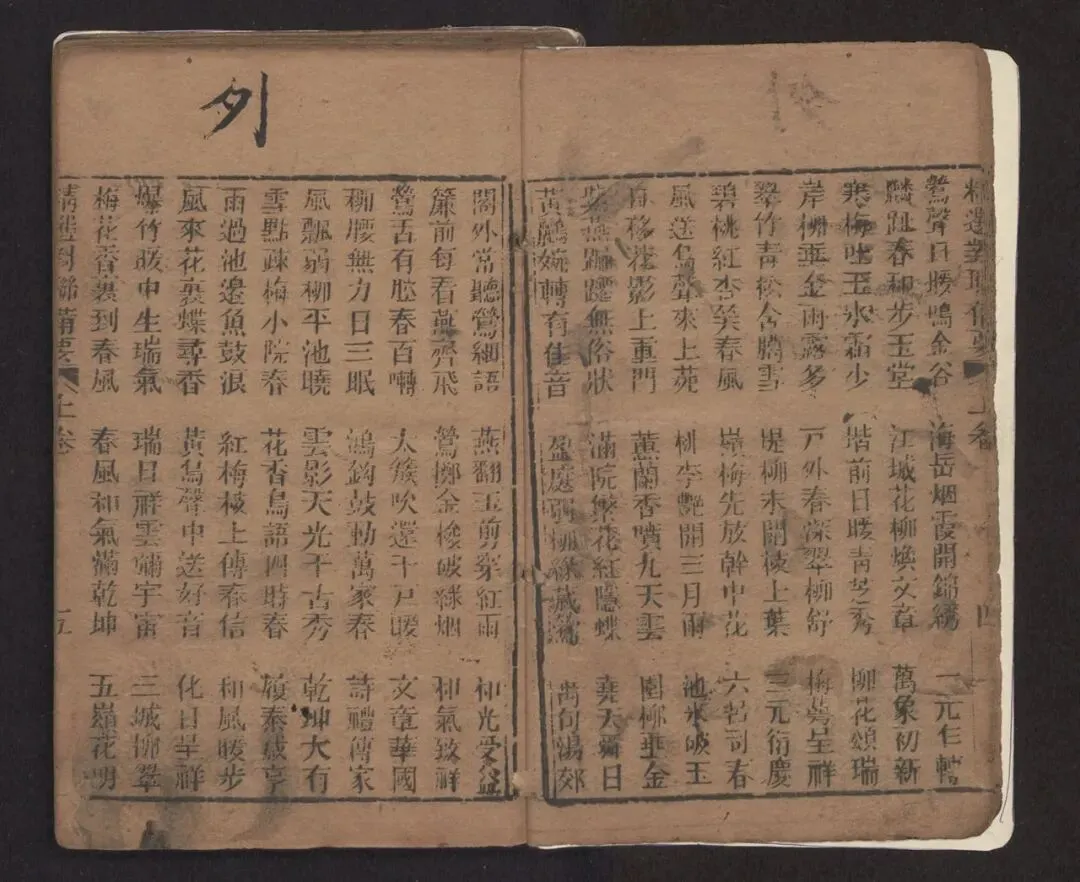 精選對聯備要 上卷 四
鶯聲日暖鳴金谷 海岳烟霞開錦綉 一元
麟趾春和步玉堂 江城花柳煥文章 萬象初新
寒梅吐玉氷霜少 堦前日暖青芝秀 柳花頌瑞
岸柳垂金雨露多 戸外春深翠柳舒 梅萼呈祥
翠竹青松含臈雪 堤柳未開枝上葉 三元衍慶
碧桃紅杏矣春風 嶺梅先放幹中花 六 司春
風送鳥聲來上苑 桃李艷開三月雨 池氷破玉
日移花影上重門 蕙蘭香噴九天雲 園柳垂金
紫燕翩躚無俗狀 滿院繁花紅隱蝶 堯天舜日
黃鸝婉轉有佳音 盈庭弱柳綠藏鶯 禹甸湯郊
列
閣外常聽鶯細語 燕翻玉剪穿紅雨 和光受益
簾前每看燕齊飛 鶯擲金梭破綠烟 和氣致祥
鶯舌有腔春百囀 太簇吹還千戸暖 文章華國
柳腰無力日三眠 鴻鈞鼓動萬家春 詩禮傳家
風飄弱柳平池曉 雲影天光千古秀 乾坤大有
雪點疎梅小院春 花香鳥語四時春 履泰咸亨
雨過池邊魚鼓浪 紅梅枝上傳春信 和風暖步
風來花裏蝶尋香 黃鳥聲中送好音 化日呈祥
爆竹暖中生瑞氣 瑞日祥雲彌宇宙 三城柳翠
梅花香裏到春風 春風和氣滿乾坤 五嶺花明
精選對聯備要 上卷 五